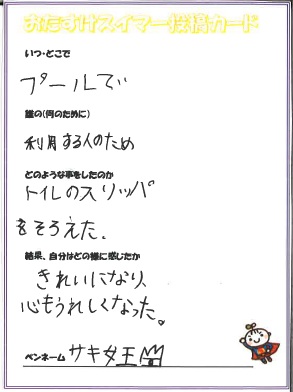 おたすけスイマー投稿カード
いつ・どこで
プールで
誰の(何のために)
利用する人のため
どのような事をしたのか
トイレのスリッパ
をそろえた.
結果、自分はどの様に感じたか
きれいになり、
心もうれしくなった。
ペンネーム サキ女王